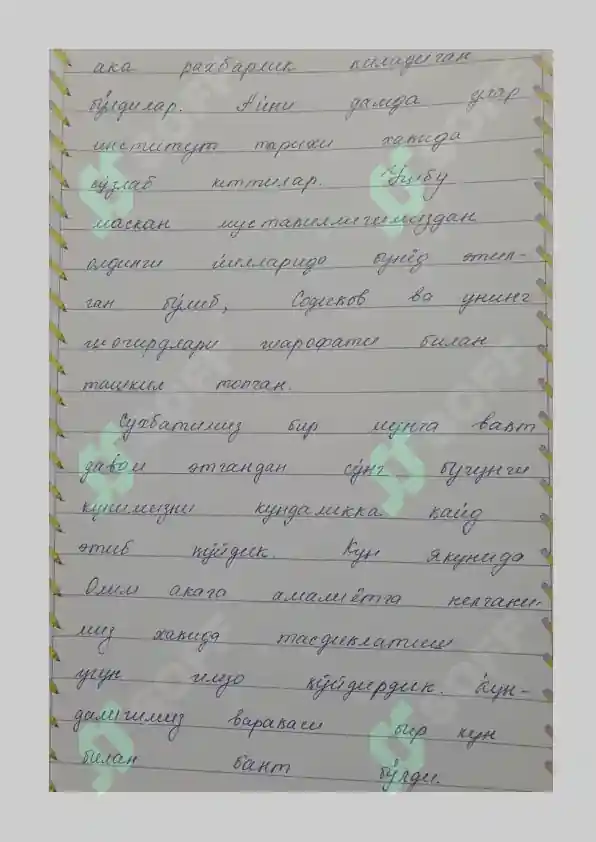 ака рахбарлик киладиган
бўлдилар. Айни дамда улар
институт тарихи хакида
сўзлаб кетдилар. Ушбу
маскан мустакиллигимиздан
олдинги йилларида бунёд этил-
ган бўлиб, Содиков ва унинг
шогирдлари шарофати билан
ташкил топган.
Сухбатимиз бир мунча вакт
давом этгандан сўнг бугунги
кунимизни кундаликка кайд
этиб кўйдик. Кун якунида
Олим акага амалиётга келгани-
миз хакида тасдиклатиш
учун имзо кўйдирдик. Кун-
далигимиз варакаси бир кун
билан бант бўлди.